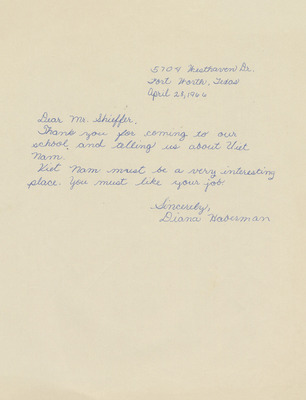 5704 Westhaven Dr.
Fort Worth, Texas
April 21, 1966
Dear Mr. Shieffer,
Thank you for coming to our
school and alling us about Viet
Nam.
Viet Nam must be a very interesting
place. You must like your job
Sincereby,
Diana Haberman